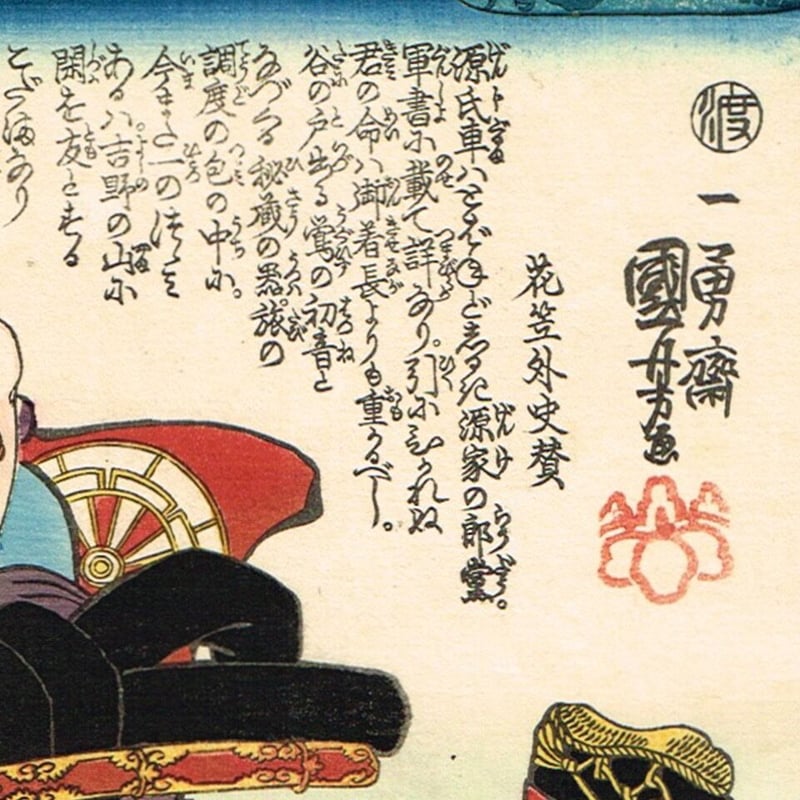 渡
一勇齋
國芳画
花笠外史賛
源氏車ハとはねどしるき源家の郎黨。
軍書に載て詳なり。引にひかれぬ
君の命ハ御着長よりも重かるべし。
谷の戸出る鶯の初音と
なづくる秘蔵の器。旅の
調度の包の中に。
今また一の
あるハ吉野の山に
閑を友とする
こだまなり